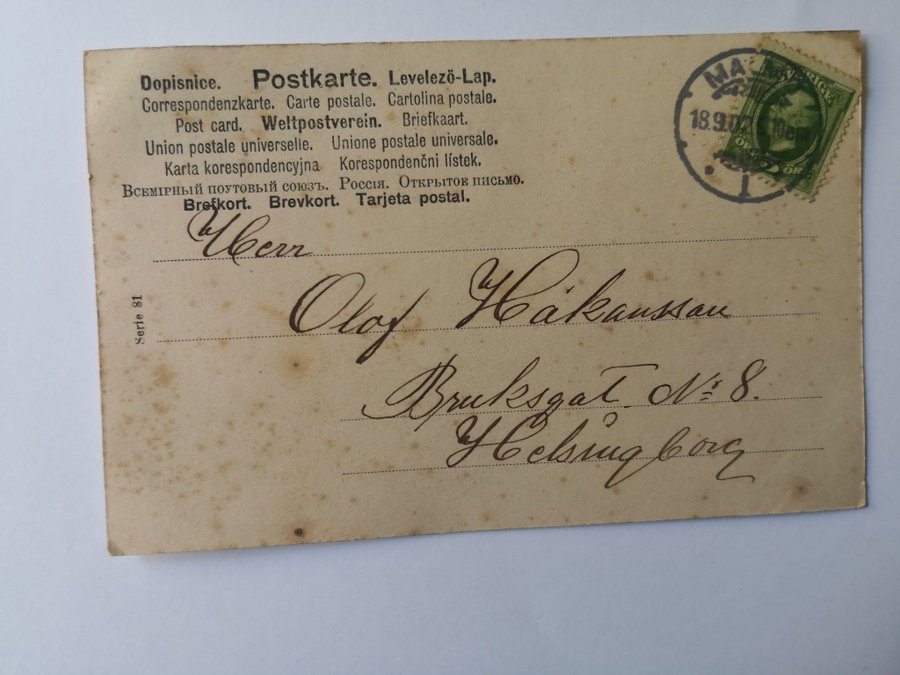 Dopisnice. Postkarte. Levelezö-Lap.
Correspondenzkarte. Carte postale. Cartolina postale.
Post card. Weltpostverein. Briefkaart.
Union postale universelle. Unione postale universale.
Karta korespondencyjna Korespondenčni listek.
Всемірный поутовый союзъ. Россія. Открытое письмо.
Brefkort. Brevkort. Tarjeta postal.
Herr
Olof Håkansson
Bruksgat. No 8.
Helsingborg
Serie 81
18.9.02
1